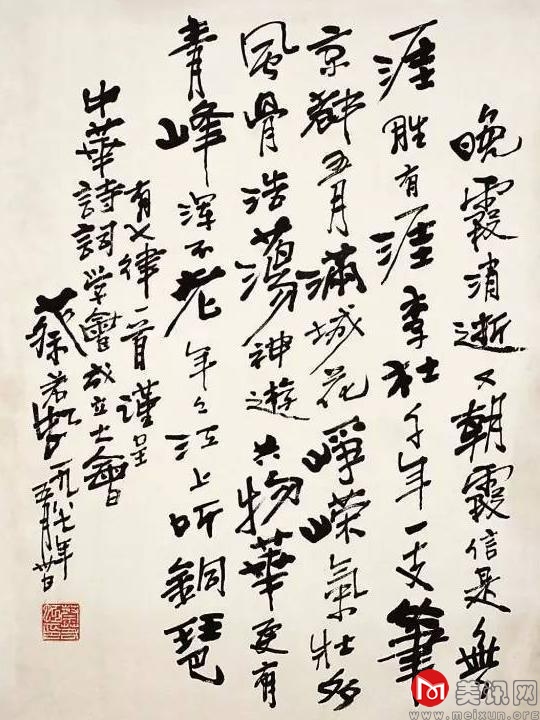 晚霞消逝又朝霞信是無
涯胜有涯李杜千年一支筆
京都五月滿城花崢嶸氣壯多
風骨浩蕩神遊共物華更有
青峰浑不老年々江上听銅琶
有七律一首谨呈
中華詩詞学會成立大會
蔡若虹一九八七年
五月廿日
美讯网
www.meixun.org